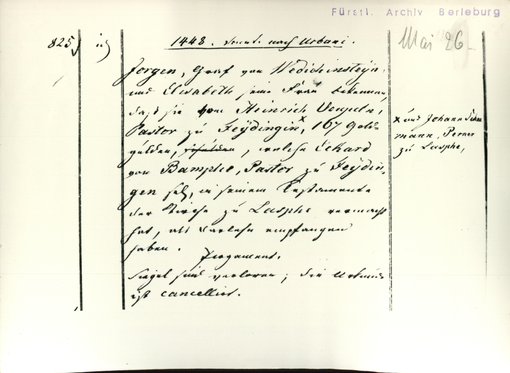 Fürstl. Archiv Berleburg
825
1448. Sonnt. nach Urbani.
Mai 26
Jorgen, Graf von Wedichinsteyn
und Elisabeth seine Frau bekennen,
daß sie von Heinrich
Pastor zu Feydingin x, 167 Gold-
gulden, welche Eckard
von Pastor zu Feydin-
gen sel. in seinem Testamente
der Kirche zu Lasphe vermacht
hat, als Darlehn empfangen
haben.
Pergament.
Siegel sind verloren; die Urkunde
ist cancelliert.
x und Johann
mann,
zu Lasphe,